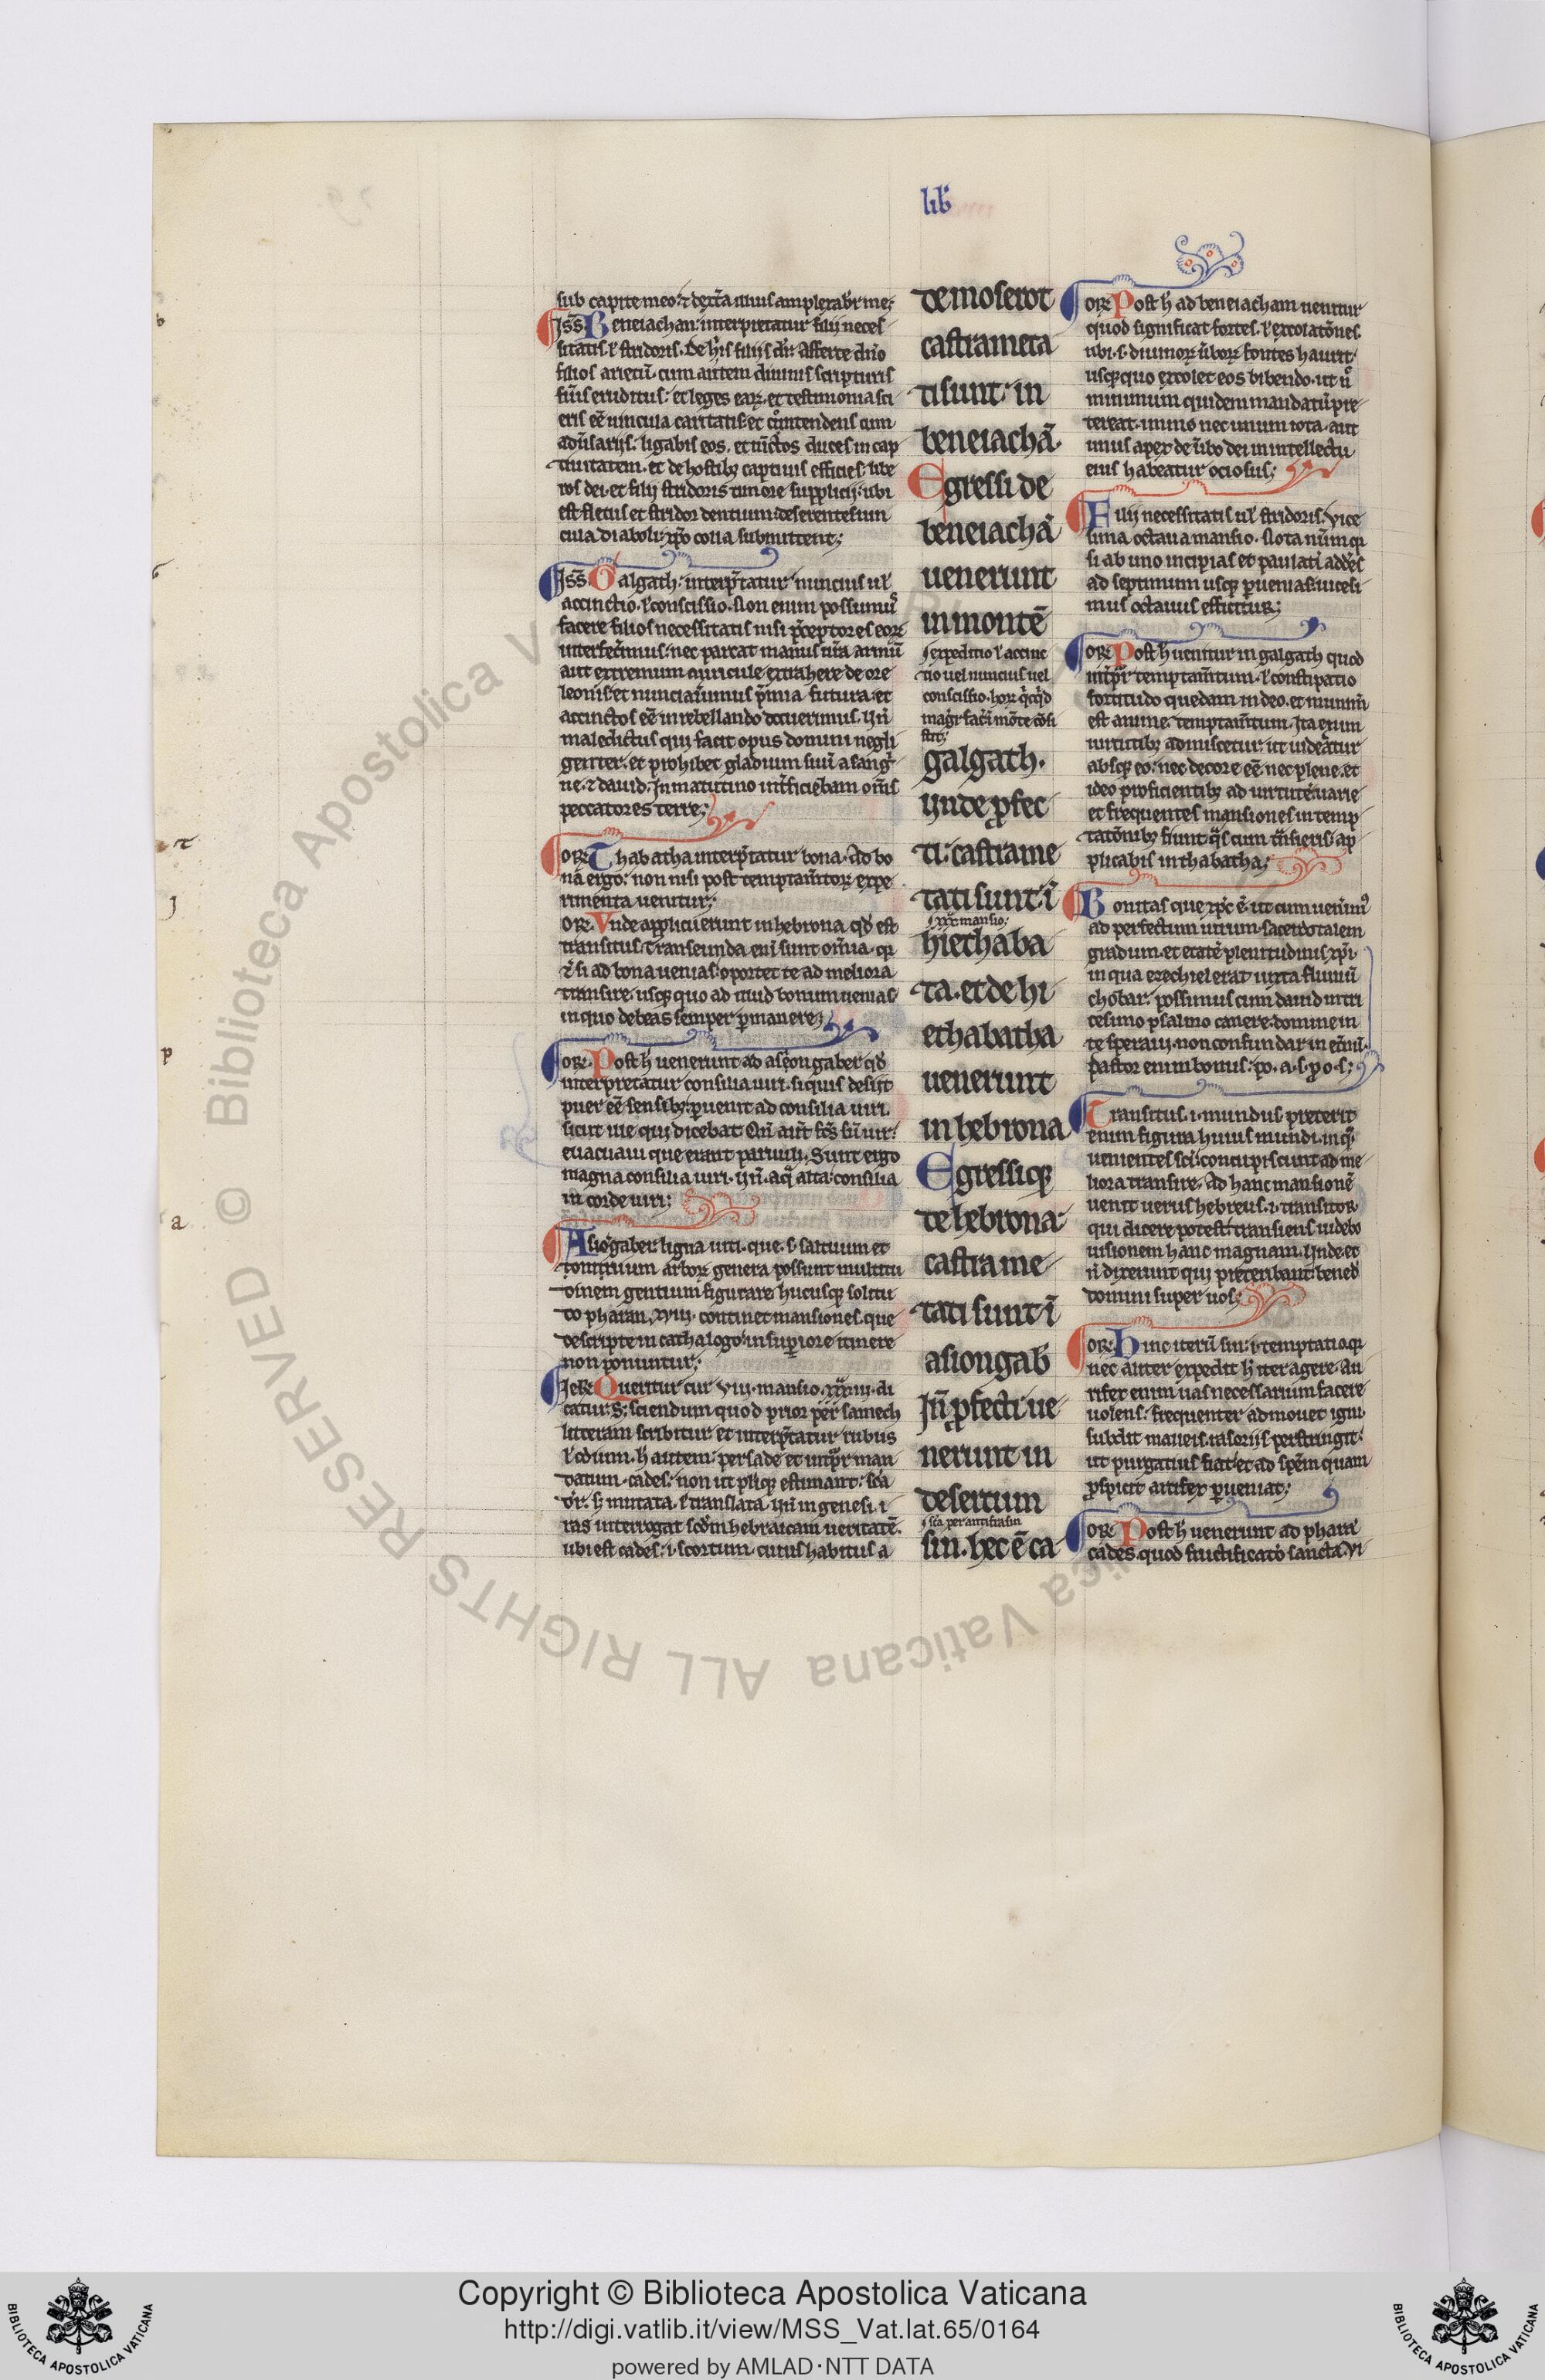 lib̃
sub capite meo. ⁊ dextᷓa illius amplexab̾r me;
Jsš. Beneiachan: interpretatur filij neces
sitatis. ł stridoris. De hĩs filijs dr̃: Afferte dño
filios arietũ. cum autem diuinis scripturis
fũis eruditus: et leges eaꝝ. et testimonia sci
eris eẽ uincula caritatis: et cõntendens cum
adũsarijs. ligabis eos. et uĩctos duces in cap
tiuitatem. et de hostibꝫ captiuis efficies. libe
ros dei. et filij stridoris timore supplicij: ubi
est fletus et stridor dentium: deserentes uin
cula diaboli: xp̃o colla submittent;
Jsš. Galgath: interp̃tatur nuncius ul̃
accinctio. ł conscissio. Non enim possumꝰ
facere filios necessitatis nisi p̃ceptores eoꝝ
interfecim̃us: nec parcat manus nr̃a armũ
aut extremum auricule extrahere de ore
leonis: et nunciaũimus p̃mia futura: et
accinctos eẽ in rebellando docuerimus. Vñ
maledictus qui facit opus domini negli
genter. et prohibet gladium suũ a sang̃
ne. ⁊ dauid: Jn matutino int̃ficiebam om̃s
peccatores terre;
ORꝭ. Thabatha interp̃tatur bona. Ad bo
nã ergo: non nisi post temptam̃toꝝ expe
rimenta uenitur;
ORꝭ. Vnde applicuerunt in hebrona. qd̾ est
transitus. Transeunda eni sunt om̃ia. qꝛ
⁊̃ si ad bona uenias: oportet te ad meliora
transire. usq̃ quo ad illud bonum uenias
in quo debeas semper ꝑmanere;
ORꝭ. Post h̾ uenerunt ad asiongaber qd̾
interpretatur consilia uiri. si quis desijt
puer eẽ sensibꝫ: ꝑuenit ad consilia uiri.
sicut ille qui dicebat. Qñ aut̃ fc̃s sũ uir:
euacuaui que erant paruuli. Sunt ergo
magna consilia uiri. Vñ. aq̃ alta: consilia
in corde uiri;
Asiõgaber ligna uiri. que. s. saltuum et
tonitruum arboꝝ genera possunt multitu
dinem gentium figurare: hucusq̃ solitu
do pharan. xviij. continet mansiones. que
descripte in cathalogo: in suꝑiore itinere
non ponuntur;
JeRꝭ. Queritur cur viij. mansio. xxxiij. di
catur. S; sciendum quod prior per samech
litteram scribitur et interp̃tatur rubus
ł odium. h̾ autem: per sade et int̃pr̃ man
datum. cades: non ut pliq̃ estimant: sc̃a
dr̃. s; mutata. ł translata. Vñ in genesi. i
ras interrogat scd̾m hebraicam ueritatẽ.
ubi est cades. i. scortum. cuius habitus a
de moserot
castrameta
ti sunt in
beneiachã.
Egressi de
beneiachã
uenerunt
in montẽ
expeditio ł accinc
tio uel nuncius uel
conscissio.
galgath.
Vnde ꝓfec
ti: castrame
tati sunt ĩ
xxx. mansio;
hiethaba
ta. et de hi
ethabatha
uenerunt
in hebrona
Egressiq̃
de hebrona:
castrame
tati sunt ĩ
asiongab̾
Jñ ꝓfecti ue
nerunt in
desertum
sc̃a per antifrasin
sin. hec ẽ ca
ORꝭ. Post h̾ ad beneiacham uenitur
quod significat fontes. ł excolatõnes.
ubi. s. diuinoꝝ ũboꝝ fontes haurit:
usq̃ quo excolet eos bibendo. ut ñ
minimum quidem mandatũ pre
tereat. immo nec unum iota. aut
unus apex de ũbo dei in intellectu
eius habeatur ociosus;
Filij necessitatis ul̃ stridoris. vice
sima octaua mansio. Nota nũm qꝛ
si ab uno incipias et paulatĩ addẽs
ad septimum usq̃ ꝑuenias: uicesi
mus octauus efficitur;
ORꝭ. Post h̾ uenitur in galgath quod
int̃pr̃ temptam̃tum. ł constipatio
fortitudo quedam in deo. et munim̃
est anime temptam̃tum. Jta enim
uirtutibꝫ admiscetur: ut uideatur
absq̃ eo: nec decore eẽ. nec plene. et
ideo proficientibꝫ ad uirtutẽ: uarie
et frequentes mansiones in temp
tatõnibꝫ fiunt. q̃s cum tñsieris: ap
plicabis in thabatha;
Bonitas que xp̃c ẽ. ut cum uenim̃ꝰ
ad perfectum uirum. sacerdotalem
gradum. et etatẽ plenitudinis xp̃i
in qua ezechiel erat iuxta fluuiũ
chobar. possimus cum dauid in tri
cesimo psalmo canere: domine in
te speraui. non confundar in et̃nũ.
pastor enim bonus: po. a. s. p̱ o. s;
Transitus. i. mundus. preterit
enim figura huius mundi. in q̃
uenientes sc̃i: concupiscunt ad me
liora transire. Ad hanc mansionẽ
uenit uerus hebreus. i. transitor.
qui dicere potest: transiens uidebo
uisionem hanc magnam. Vnde et
ñ dixerunt qui preteribant: bened̾
domini super uos;
ORꝭ. Hinc iterũ sin. i. temptatio. qꝛ
nec aliter expedit h̾ iter agere. Au
rifex enim uas necessarium facere
uolens: frequenter admouet igni
subdit malleis. rasorijs perstringit:
ut purgatius fiat: et ad spẽm quam
ꝓspicit artifex ꝑueniat;
ORꝭ. Post h̾ uenerunt ad pharã
cades. quod fructificatõ sancta. Vi
Biblioteca Apostolica Vaticana ALL RIGHTS RESERVED ©
Copyright © Biblioteca Apostolica Vaticana
http://digi.vatlib.it/view/MSS_Vat.lat.65/0164
powered by AMLAD·NTT DATA
BIBLIOTECA APOSTOLICA VATICANA
BIBLIOTECA APOSTOLICA VATICANA